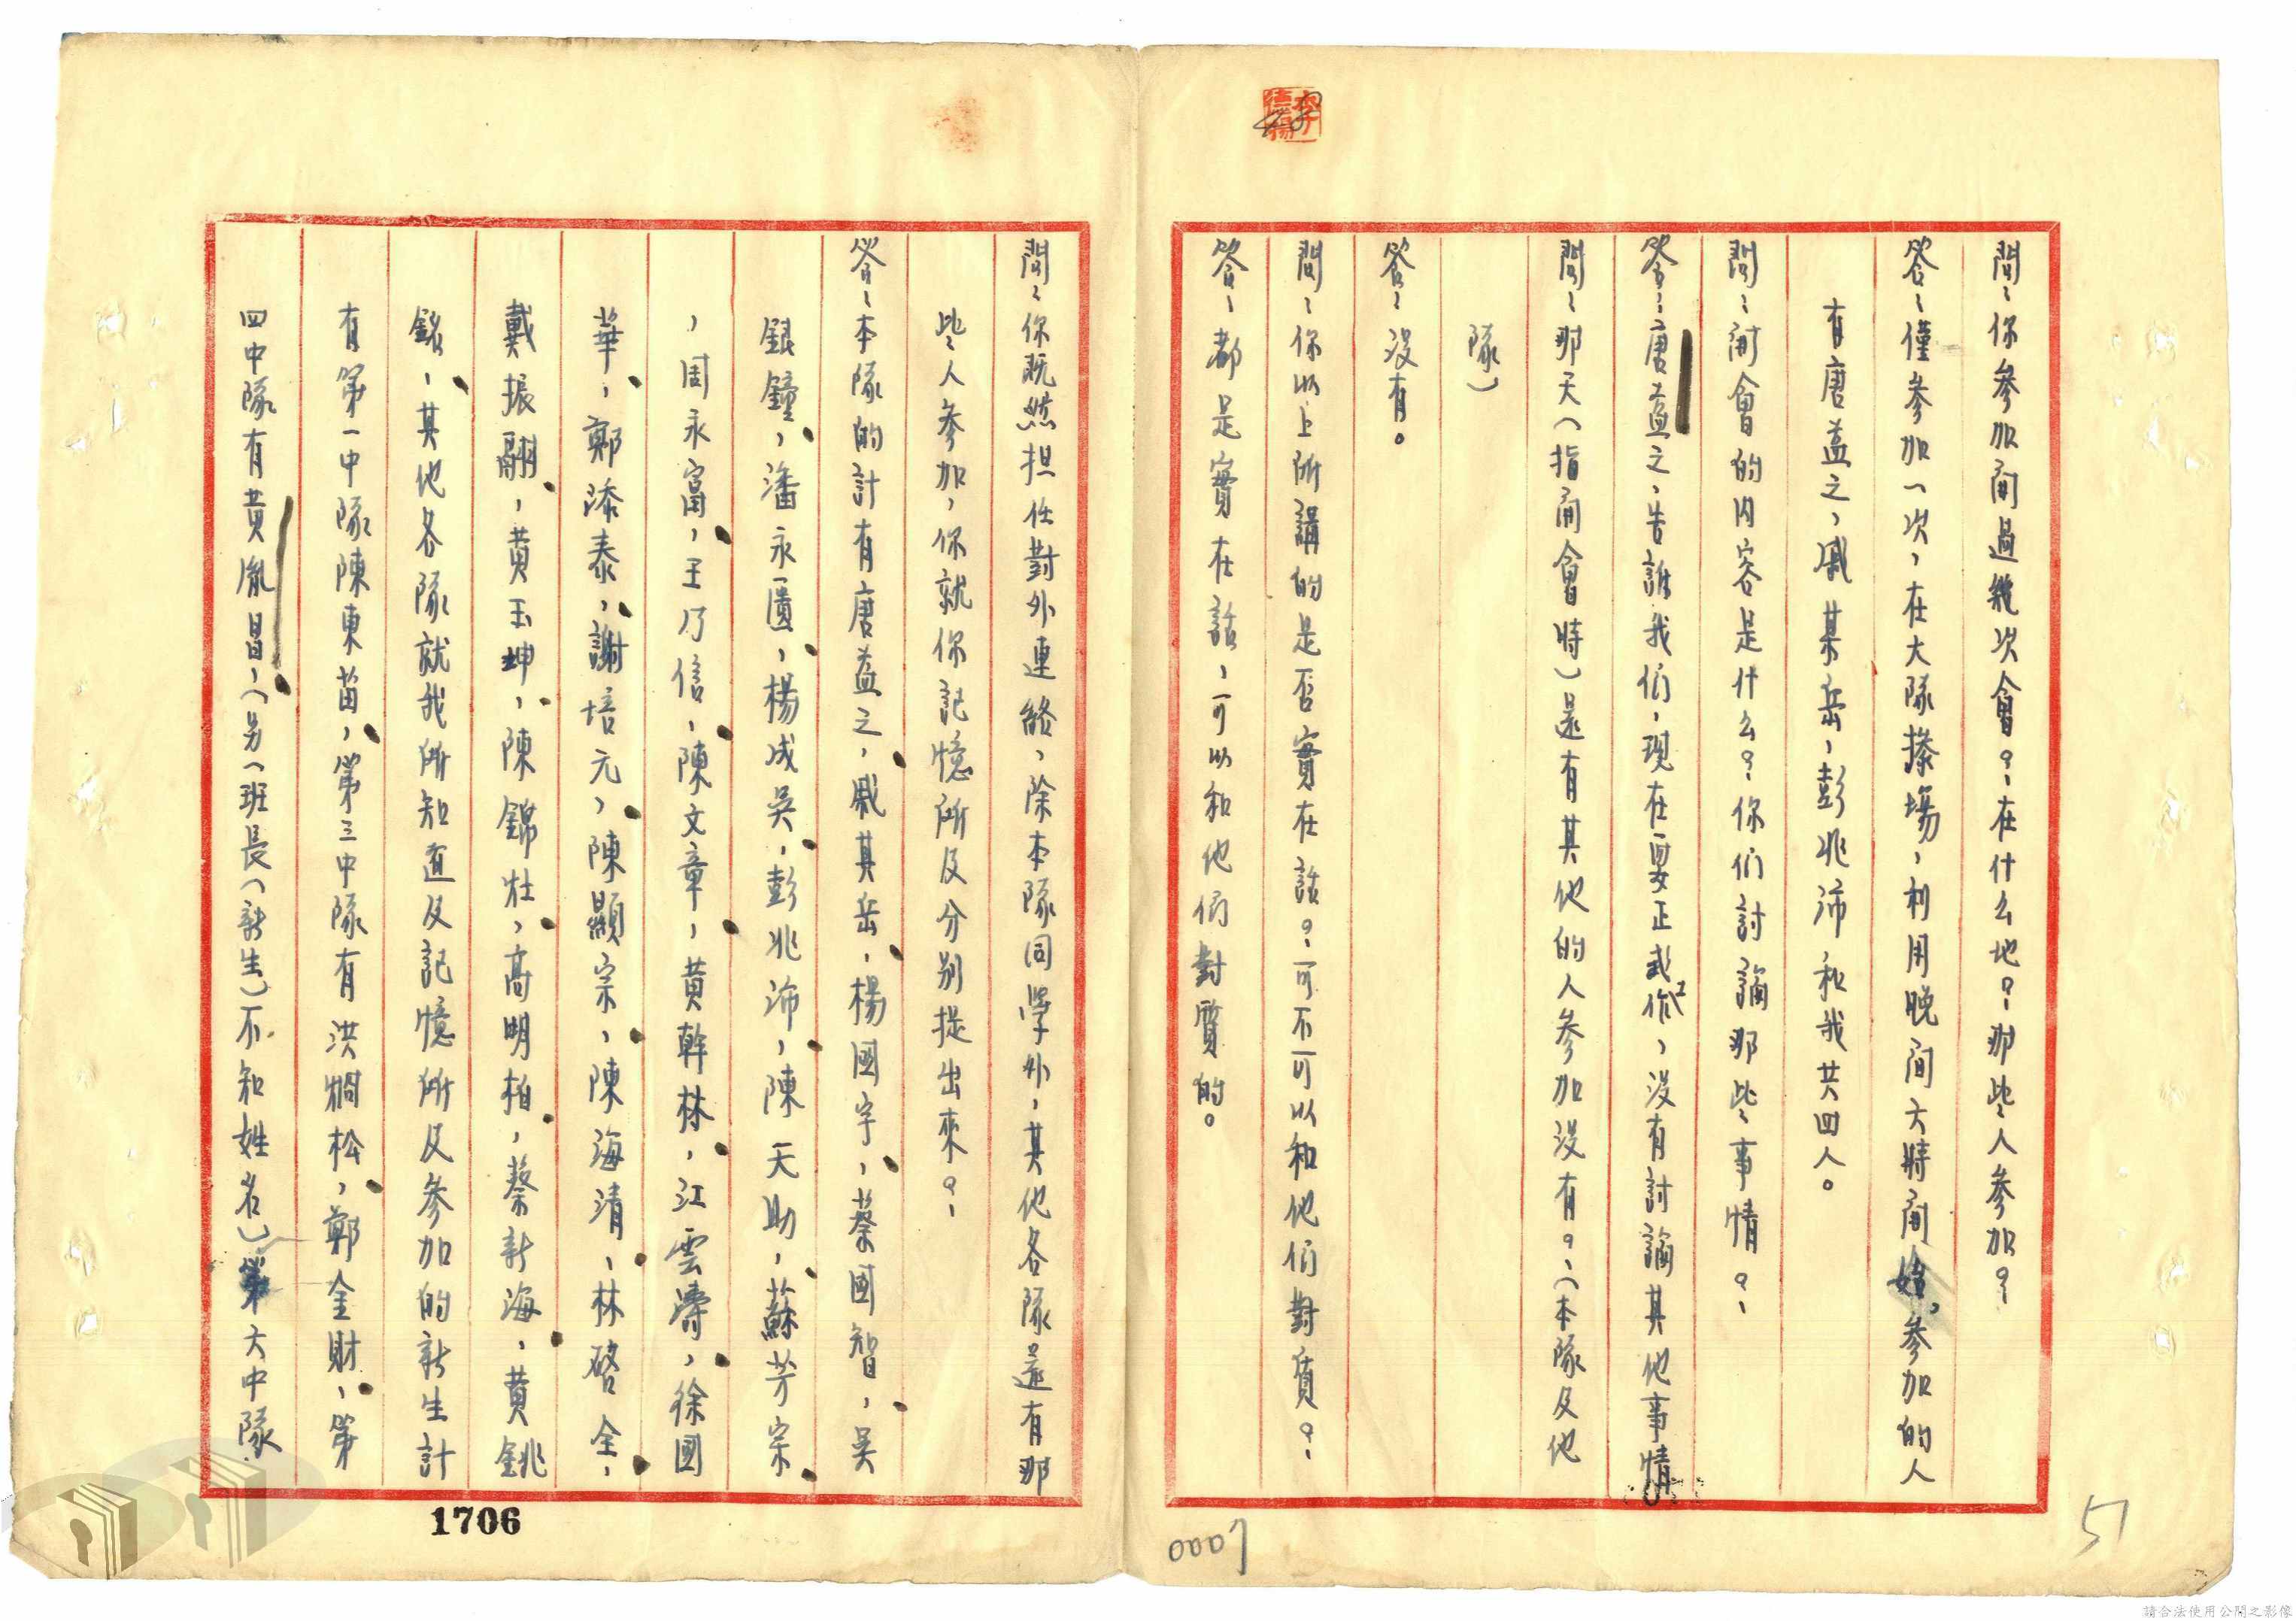 問：你參加開過幾次會？在什么地？那些人參加？
答：僅參加一次，在大隊操場，利用晚間大時間 參加的人
有唐益之，戚某岳，彭兆沛和我共四人。
問：開會的內容是什么？你們討論那些事情？
答：唐益之，告訴我們，現在要正式工作，沒有討論其他事情。
問：那天（指開會時）還有其他的人參加沒有？（本隊及他
隊）
答：沒有。
問：你以上所講的是否實在話？可不可以和他們對質？
答：都是實在話，可以和他們對質的。
問：你既然担任對外連絡，除本隊同學外，其他各隊還有那
些人參加，你就你記憶所及分別提出來？
答：本隊的計有唐益之，戚其岳，楊國宇，蔡國智，吳
鋕鐘，潘永匯，楊成吳，彭兆沛，陳天助，蘇芳宗
，周永富，王乃信，陳文章，黃幹林，江雲濤，徐國
華，鄭添泰，謝培元，陳顯宗，陳海清，林啓全，
戴振翮，黃玉坤，陳錦壯，高明柏，蔡新海，黃銚
銘，其他各隊就我所知道及記憶所及參加的新生計
有第一中隊陳東苗，第三中隊有洪椆松，鄭金財，第
四中隊有黃胤昌，（另一班長（新生）不知姓名）第六中隊
1706
0007
51
請合法使用公開之影像